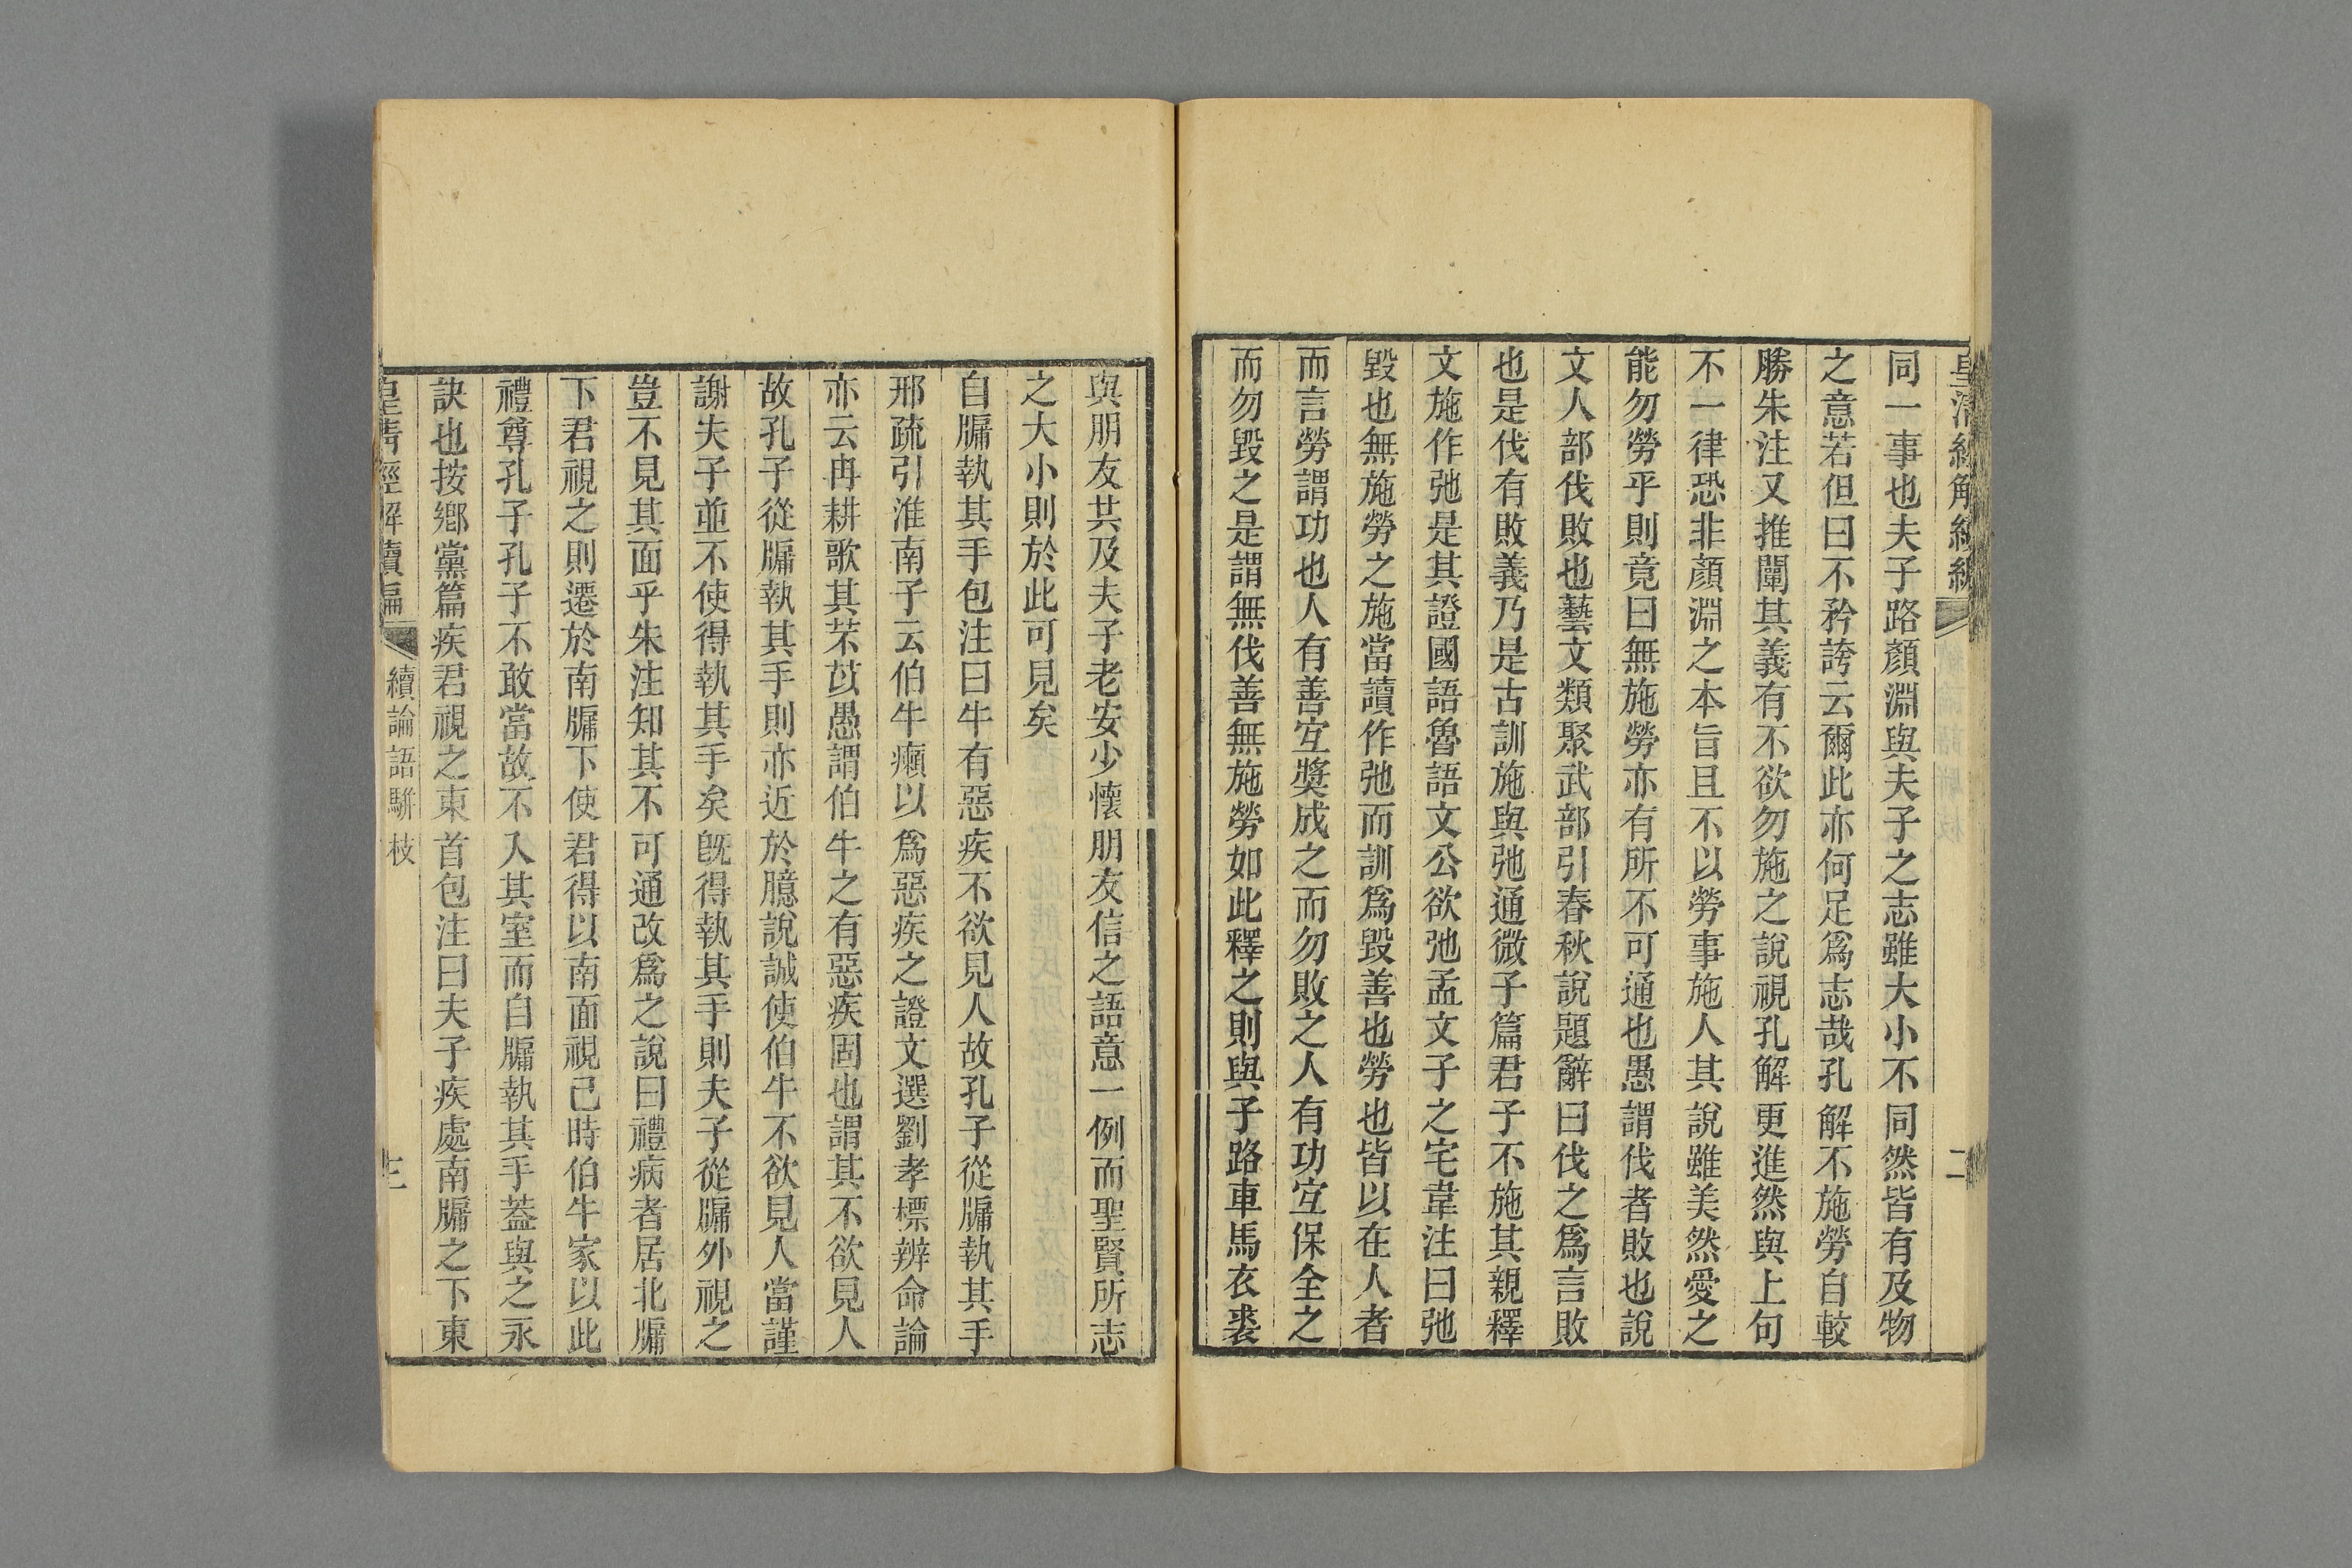 皇清經解續編
二
同一事也夫子路顏淵與夫子之志雖大小不同然皆有及物
之意若但曰不矜誇云爾此亦何足爲志哉孔解不施勞自較
勝朱注又推闡其義有不欲勿施之說視孔解更進然與上句
不一律恐非顏淵之本旨且不以勞事施人其說雖美然愛之
能勿勞乎則竟曰無施勞亦有所不可通也愚謂伐者敗也說
文人部伐敗也藝文類聚武部引春秋說題辭曰伐之爲言敗
也是伐有敗義乃是古訓施與弛通微子篇君子不施其親釋
文施作弛是其證國語魯語文公欲弛孟文子之宅韋注曰弛
毀也無施勞之施當讀作弛而訓爲毀善也勞也皆以在人者
而言勞謂功也人有善宜奬成之而勿敗之人有功宜保全之
而勿毀之是謂無伐善無施勞如此釋之則與子路車馬衣裘
與朋友共及夫子老安少懷朋友信之語意一例而聖賢所志
之大小則於此可見矣
自牖執其手包注曰牛有惡疾不欲見人故孔子從牖執其手
邢疏引淮南子云伯牛癩以爲惡疾之證文選劉孝標辨命論
亦云冉耕歌其芣苢愚謂伯牛之有惡疾固也謂其不欲見人
故孔子從牖執其手則亦近於臆說誠使伯牛不欲見人當謹
謝夫子並不使得執其手矣旣得執其手則夫子從牖外視之
豈不見其面乎朱注知其不可通改爲之說曰禮病者居北牖
下君視之則遷於南牖下使君得以南面視己時伯牛家以此
禮尊孔子孔子不敢當故不入其室而自牖執其手蓋與之永
訣也按鄉黨篇疾君視之東首包注曰夫子疾處南牖之下東
皇清經解續編
續論語駢枝
三